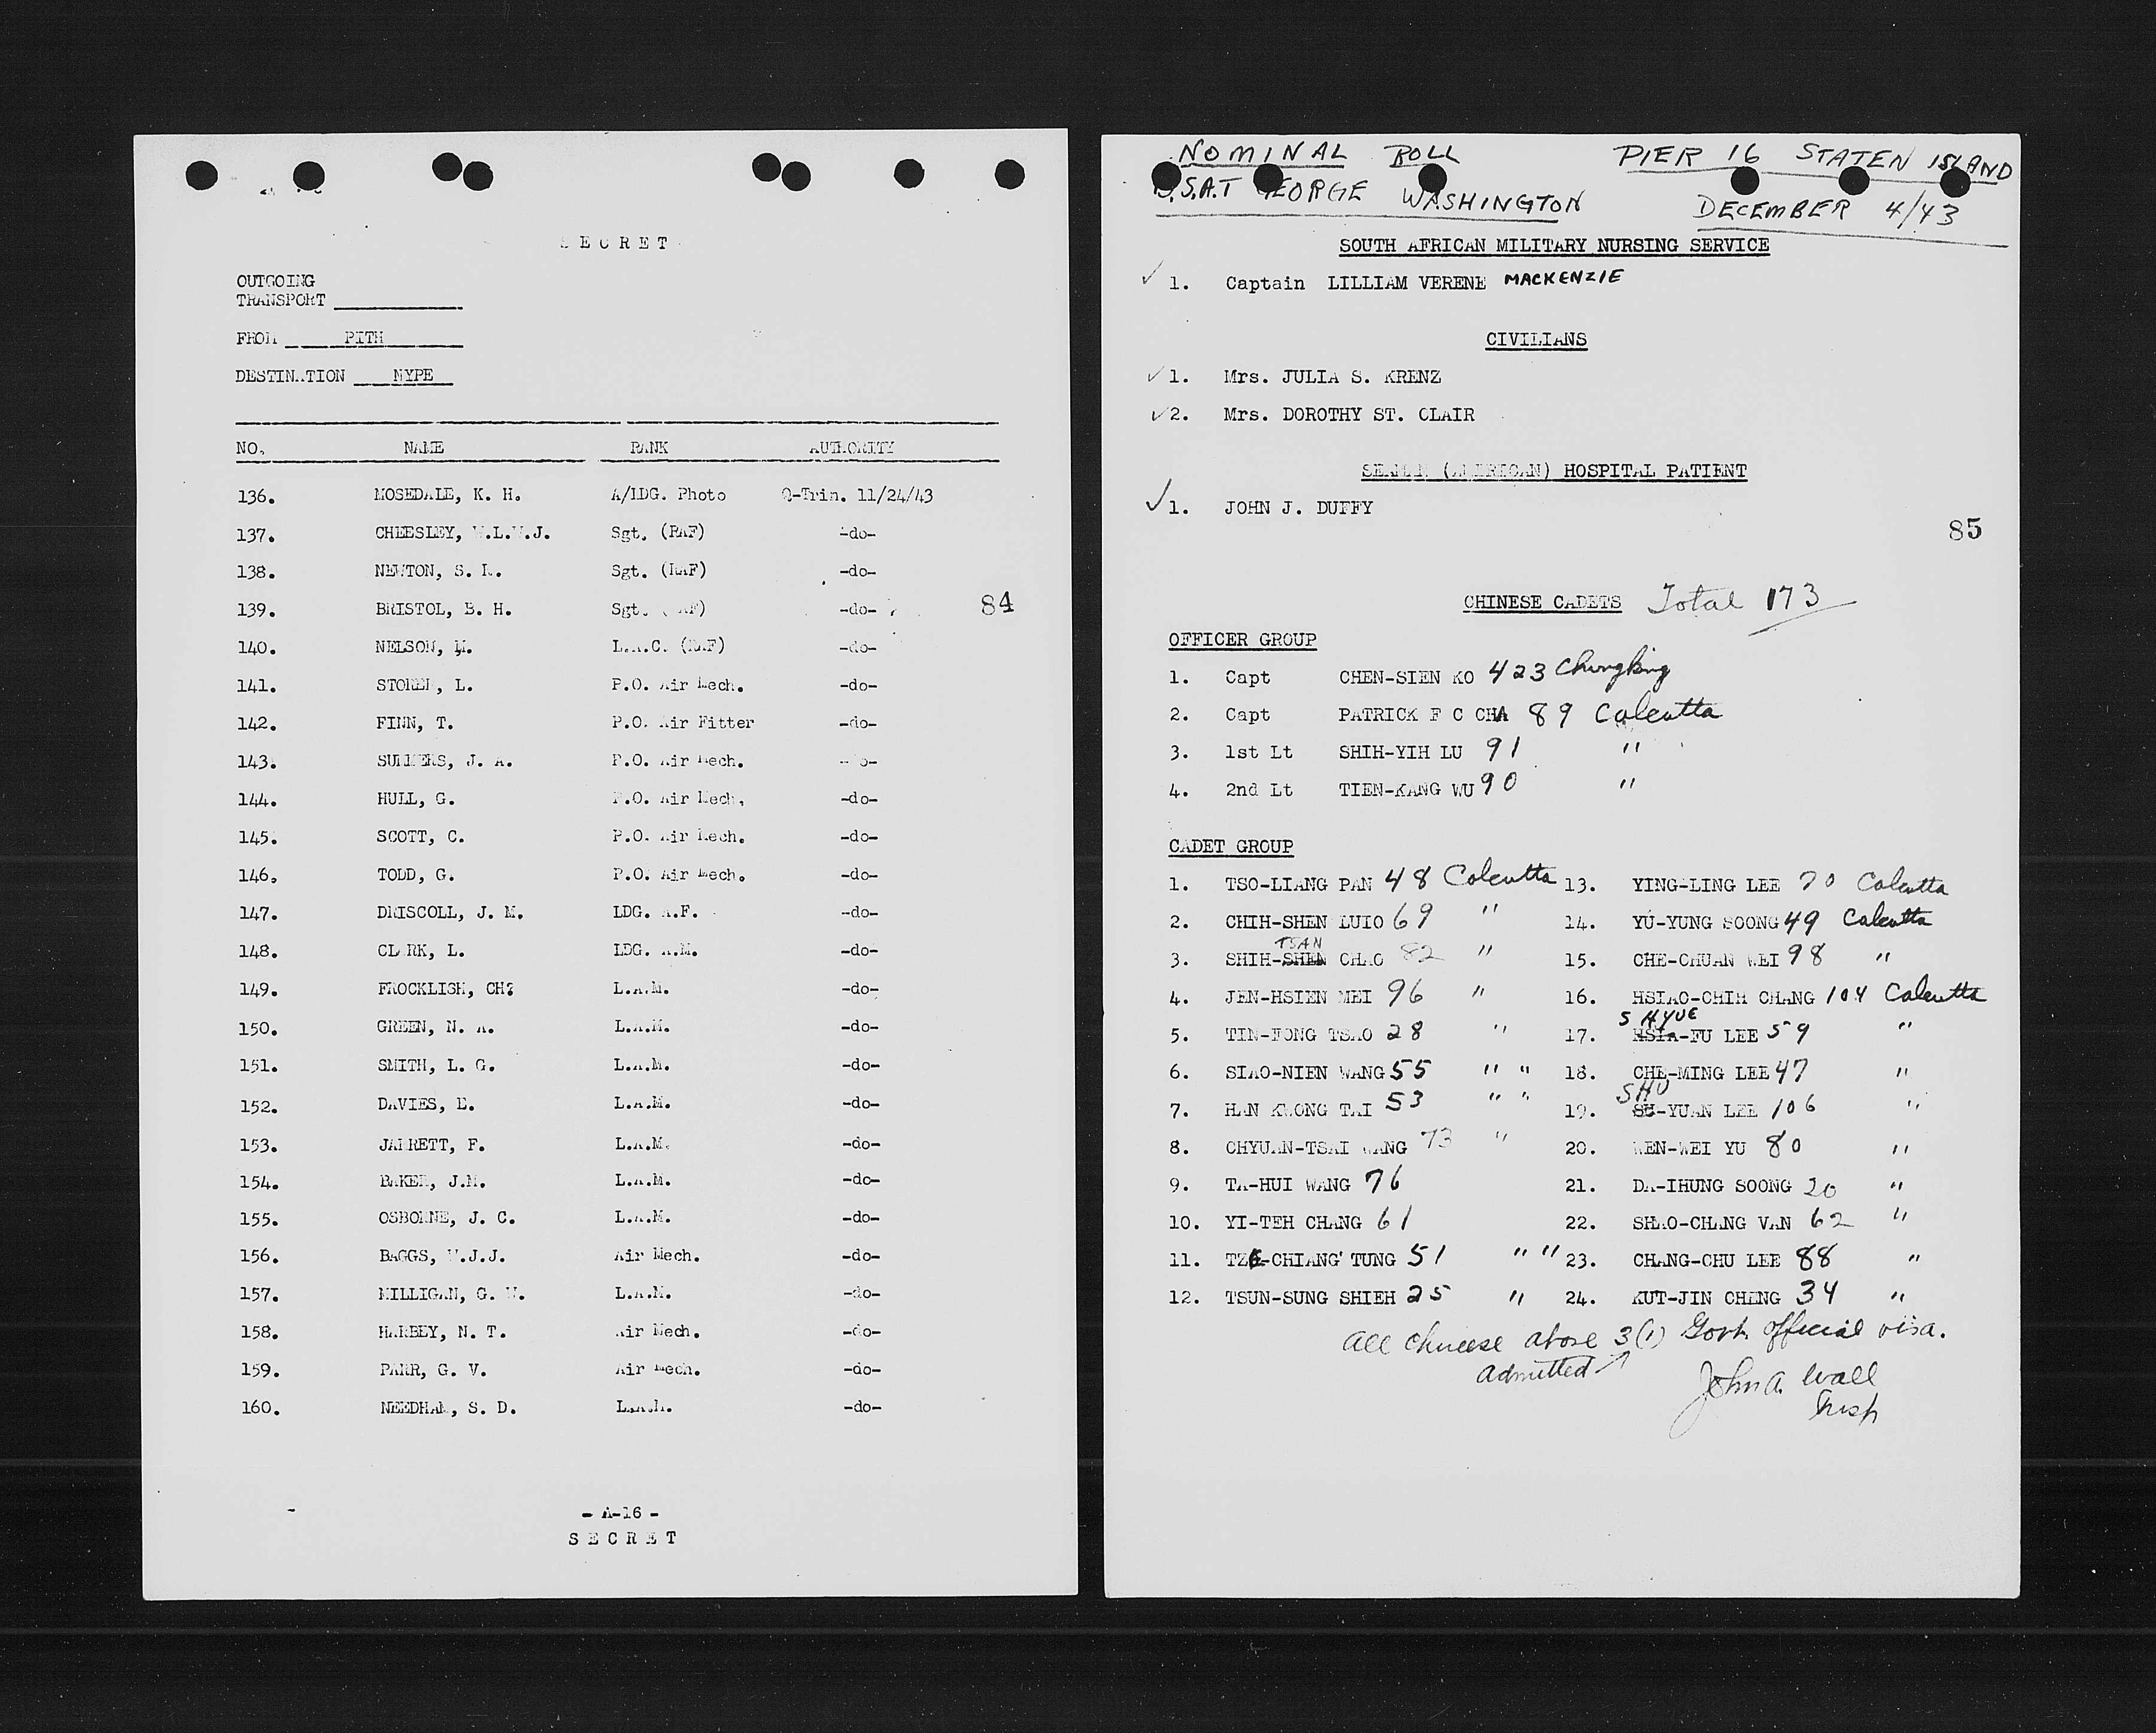 SECRET
OUTGOING
TRANSPORT
FROM PITH
DESTINATION NYPE
NO. NAME RANK AUTHORITY
136. MOSEDALE, K. H. A/LDG. Photo Q-Trin. 11/24/43
137. CHEESLEY, Sgt. (RAF) -do-
138. NEWTON, S. Sgt. (RAF) -do-
139. BRISTOL, B. H. Sgt. -do-
84
140. NELSON, M. L.A.C. (RAF) -do-
141. STORER, L. P.O. Air Mech. -do-
142. FINN, T. P.O. Air Fitter -do-
143. SUMMERS, J. A. P.O. Air Mech. -do-
144. HULL, G. P.O. Air Mech. -do-
145. SCOTT, C. P.O. Air Mech. -do-
146. TODD, G. P.O. Air Mech. -do-
147. DRISCOLL, J. M. LDG. A.F. -do-
148. CLARK, L. LDG. A.M. -do-
149. FROCKLISH, CH? L.A.M. -do-
150. GREEN, N. A. L.A.M. -do-
151. SMITH, L. G. L.A.M. -do-
152. DAVIES, E. L.A.M. -do-
153. JARRETT, F. L.A.M. -do-
154. BAKER, J.M. L.A.M. -do-
155. OSBORNE, J. C. L.A.M. -do-
156. BAGGS, W.J.J. Air Mech. -do-
157. MILLIGAN, G. W. L.A.M. -do-
158. HARBEY, N. T. Air Mech. -do-
159. PARR, G. V. Air Mech. -do-
160. NEEDHAM, S. D. L.A.M. -do-
- A-16 -
SECRET
NOMINAL ROLL PIER 16 STATEN ISLAND
U.S.A.T GEORGE WASHINGTON DECEMBER 4/43
SOUTH AFRICAN MILITARY NURSING SERVICE
1. Captain LILLIAM VERENE MACKENZIE
CIVILIANS
1. Mrs. JULIA S. KRENZ
2. Mrs. DOROTHY ST. CLAIR
SEAMEN (AMERICAN) HOSPITAL PATIENT
1. JOHN J. DUFFY
85
CHINESE CADETS Total 173
OFFICER GROUP
1. Capt CHEN-SIEN KO 423 Chungking
2. Capt PATRICK F C CHA 89 Calcutta
3. 1st Lt SHIH-YIH LU 91 "
4. 2nd Lt TIEN-KANG WU 90 "
CADET GROUP
1. TSO-LIANG PAN 48 Calcutta 13. YING-LING LEE 70 Calcutta
2. CHIH-SHEN LUIO 69 " 14. YU-YUNG SOONG 49 Calcutta
TSAN
3. SHIH-SHEN CHAO 82 " 15. CHE-CHUAN WEI 98 "
4. JEN-HSIEN MEI 96 " 16. HSIAO-CHIH CHANG 104 Calcutta
SHYUE
5. TIN-FONG TSAO 28 " 17. HSIA-FU LEE 59 "
6. SIAO-NIEN WANG 55 " " 18. CHE-MING LEE 47 "
SHU
7. HAN KWONG TAI 53 " " 19. SU-YUAN LEE 106 "
8. CHYUAN-TSAI WANG 73 " 20. WEN-WEI YU 80 "
9. TA-HUI WANG 76 21. DA-IHUNG SOONG 20 "
10. YI-TEH CHANG 61 22. SHAO-CHANG VAN 62 "
11. TZE-CHIANG TUNG 51 " " 23. CHANG-CHU LEE 88 "
12. TSUN-SUNG SHIEH 25 " 24. KUT-JIN CHENG 34 "
All Chinese above 3(1) Govt. official visa.
admitted
John A. Wall
Insp